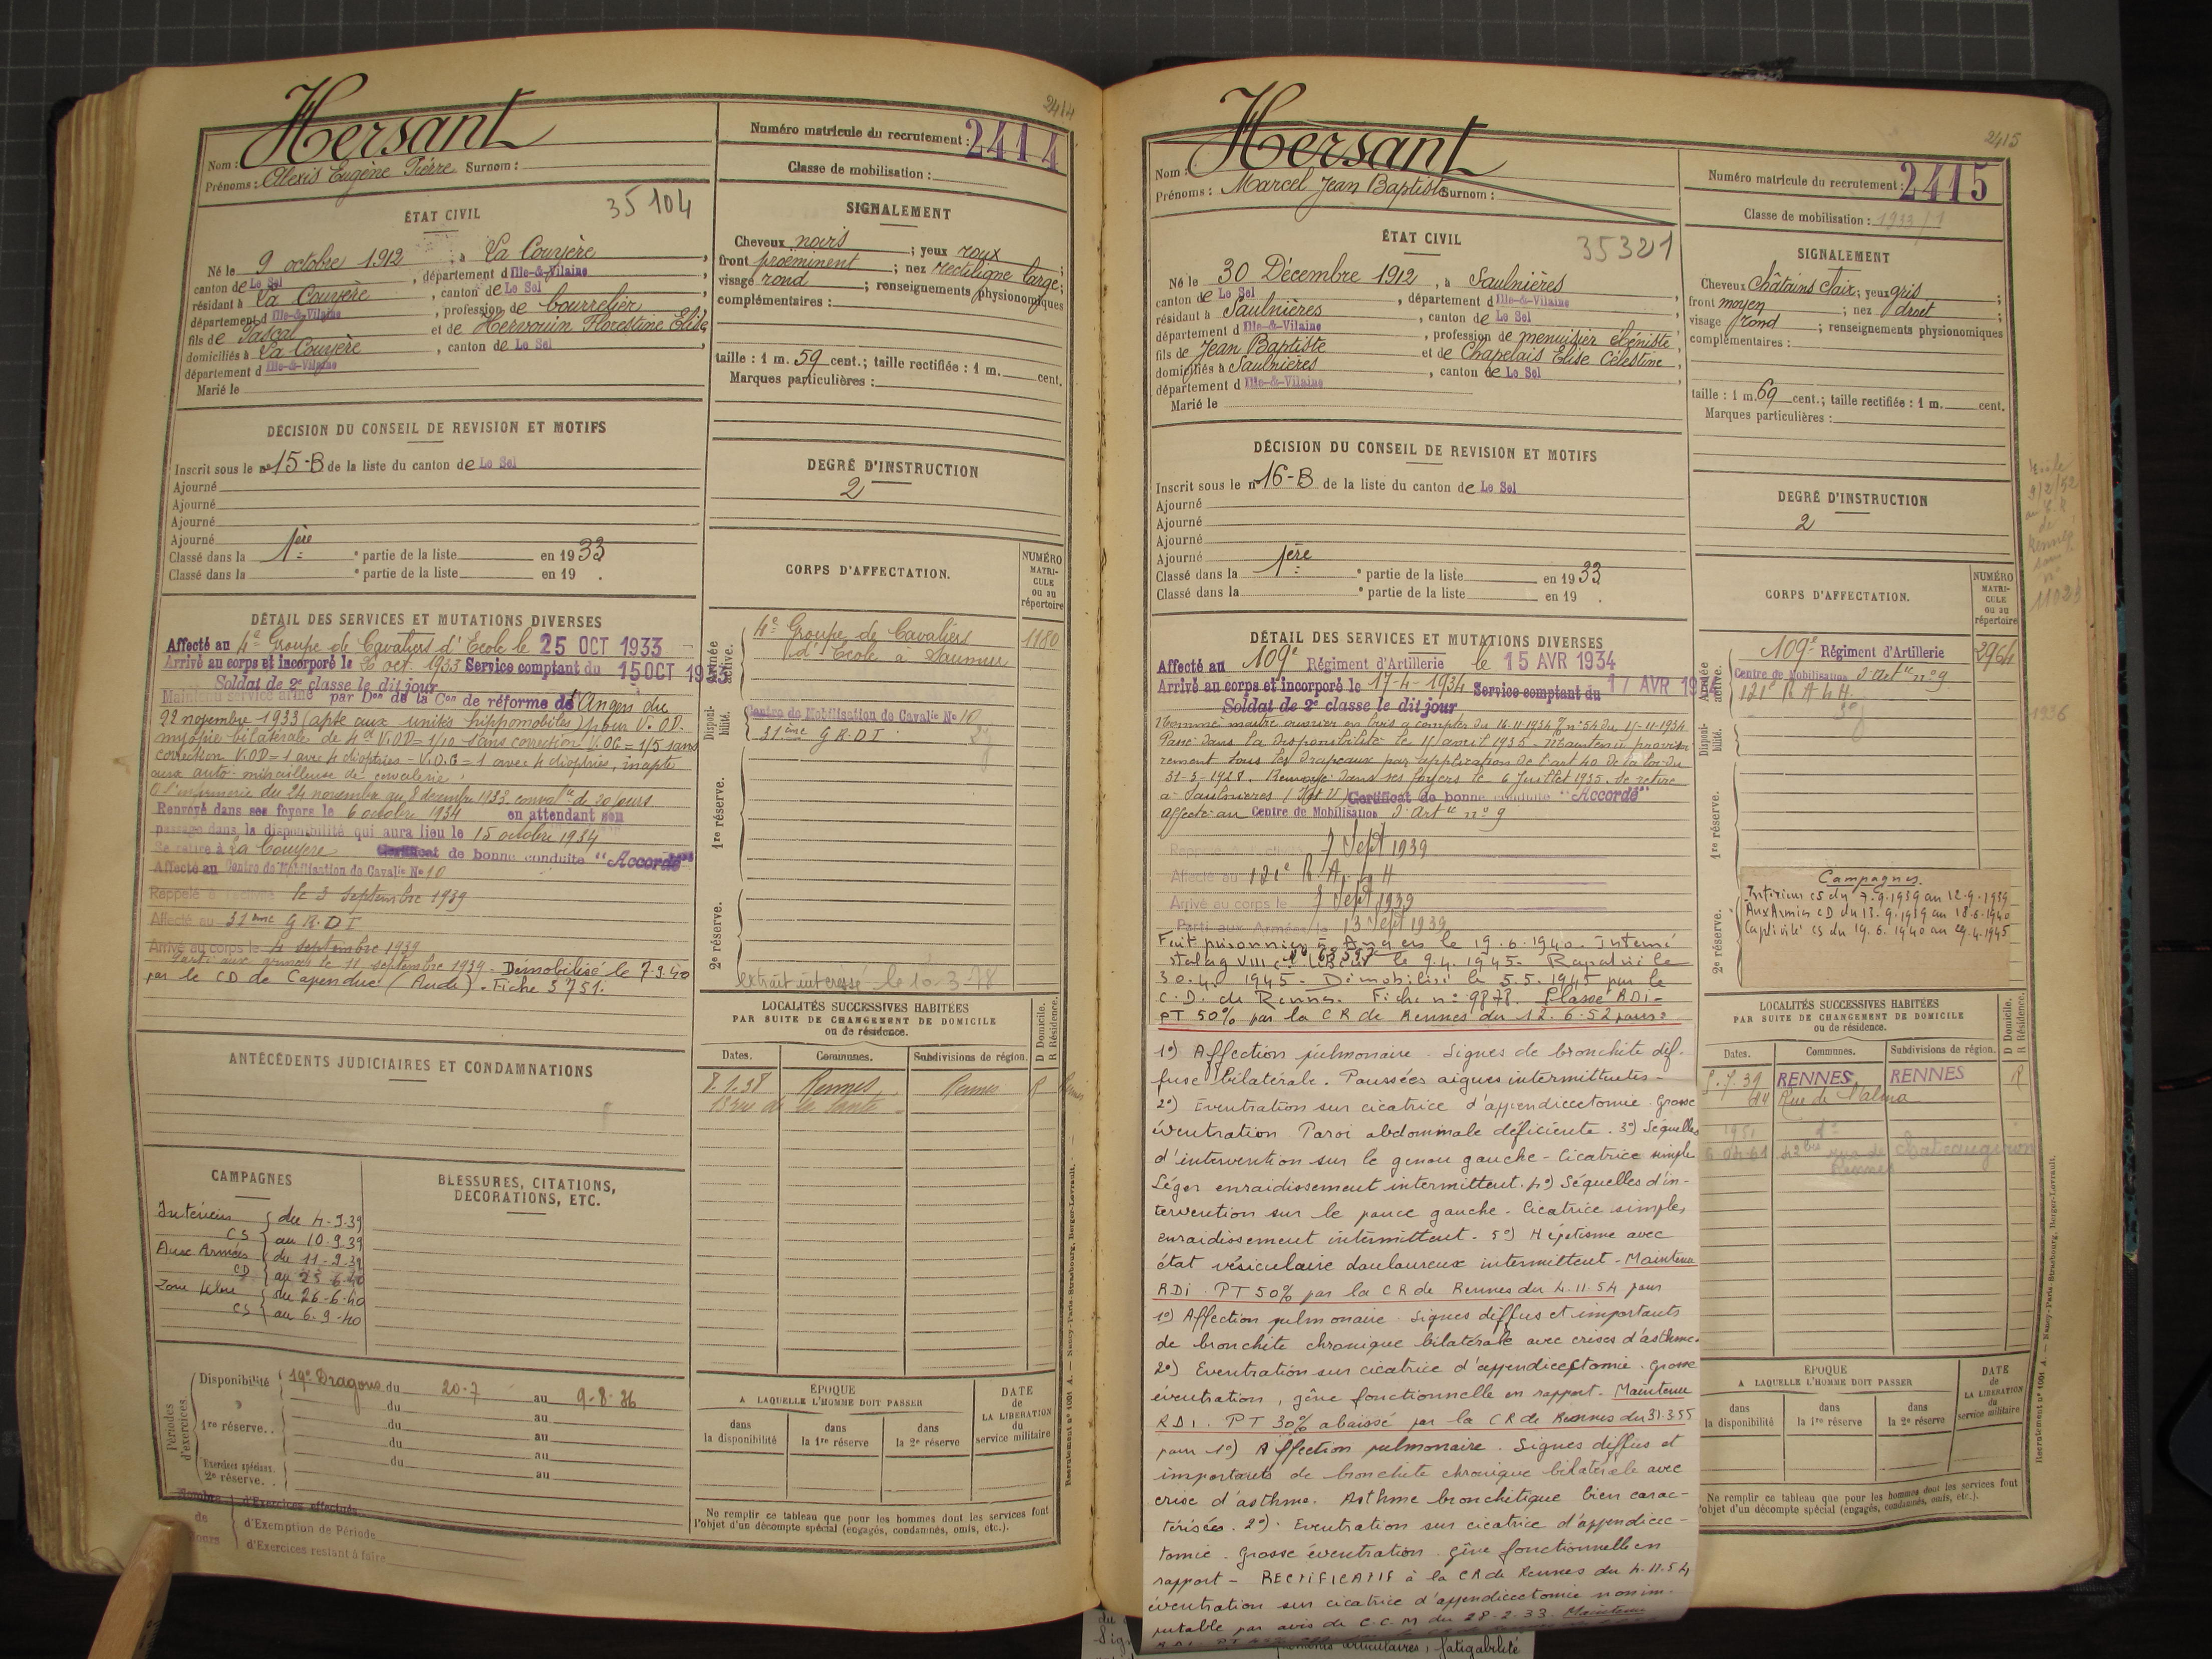 2414
Nom : Hersant
Prénoms : Alexis Eugène Pierre Surnom :
Numéro matricule du recrutement : 2414
Classe de mobilisation :
ÉTAT CIVIL
35104
Né le 9 octobre 1912, à La Couyère,
canton de Le Sel, département d Ille-&-Vilaine,
résidant à La Couyère, canton de Le Sel,
département d Ille-&-Vilaine, profession de bourrelier
fils de Pascal et de Hervouin Florestine Elise
domiciliés à La Couyère, canton de Le Sel
département d Ille-&-Vilaine
Marié le
SIGNALEMENT
Cheveux noirs ; yeux roux ;
front proéminent ; nez rectiligne large ;
visage rond ; renseignements physionomiques
complémentaires :
taille : 1 m. 59 cent.; taille rectifiée : 1 m. cent.
Marques particulières :
DÉCISION DU CONSEIL DE REVISION ET MOTIFS
Inscrit sous le n° 15-B de la liste du canton de Le Sel
Ajourné
Ajourné
Ajourné
Ajourné
Classé dans la 1ère e partie de la liste en 1933
Classé dans la e partie de la liste en 19 .
DEGRÉ D'INSTRUCTION
2
DÉTAIL DES SERVICES ET MUTATIONS DIVERSES
Affecté au 4e Groupe de Cavaliers d'Ecole le 25 OCT 1933
Arrivé au corps et incorporé le oct. 1933 Service comptant du 15 OCT 1933
Soldat de 2e classe le dit jour
Maintenu service armé par Don de la Con de réforme d'Angers du
22 novembre 1933 (apte aux unités hippomobiles) pour V. OD.
myopie bilatérale de 4d V.OD = 1/10 sans correction V.OG = 1/5 sans
correction V.OD = 1 avec 4 dioptries - V.O.G = 1 avec 4 dioptries, inapte
aux auto-mitrailleuse de cavalerie
A l'infirmerie du 24 novembre au 8 decembre 1933. convalce de 20 jours
Renvoyé dans ses foyers le 6 octobre 1934 en attendant son
passage dans la disponibilité qui aura lieu le 15 octobre 1934
Se retire à La Couyère Certificat de bonne conduite "Accordé"
Affecté au Centre de Mobilisation de Cavalie No 10
Rappelé à l'activité le 3 septembre 1939
Affecté au 31ème G.R.D.I
Arrivé au corps le 4 septembre 1939
Parti aux armées le 11 septembre 1939 - Démobilisé le 7.9.40
par le CD de Capendue (Aude). Fiche 3751.
CORPS D'AFFECTATION.
NUMÉRO MATRI-CULE ou au répertoire
Armée active.
4e Groupe de Cavaliers
d'Ecole à Saumur
1180
Disponi-bilité.
Centre de Mobilisation de Cavalie No 10
31ème G.R.D.I
1re réserve.
2e réserve.
extrait intéressé le 10-3-78
ANTÉCÉDENTS JUDICIAIRES ET CONDAMNATIONS
LOCALITÉS SUCCESSIVES HABITÉES
PAR SUITE DE CHANGEMENT DE DOMICILE
ou de résidence.
D Domicile. R Résidence.
Dates. Communes. Subdivisions de région.
8.1.38 Rennes Rennes R
13 rue de la Santé
CAMPAGNES
Intérieur CS du 4-9-39
au 10-9-39
Aux Armées CD du 11-9-39
au 25-6-40
Zone libre CS du 26-6-40
au 6-9-40
BLESSURES, CITATIONS,
DÉCORATIONS, ETC.
Périodes d'exercices.
Disponibilité 19e Dragons du 20-7 au 9-8-36
du au
1re réserve.. du au
du au
Exercices spéciaux. 2e réserve. . du au
au
Nombre de Jours
d'Exercices effectués
d'Exemption de Période
d'Exercices restant à faire
ÉPOQUE
A LAQUELLE L'HOMME DOIT PASSER
dans la disponibilité
dans la 1re réserve
dans la 2e réserve
DATE de LA LIBÉRATION du service militaire
Ne remplir ce tableau que pour les hommes dont les services font
l'objet d'un décompte spécial (engagés, condamnés, omis, etc.).
Recrutement n° 1001 A. — Nancy-Paris-Strasbourg, Berger-Levrault.
2415
Nom : Hersant
Prénoms : Marcel Jean Baptiste Surnom :
Numéro matricule du recrutement : 2415
Classe de mobilisation : 1933/1
ÉTAT CIVIL
35321
Né le 30 Décembre 1912, à Saulnières,
canton de Le Sel, département d Ille-&-Vilaine,
résidant à Saulnières, canton de Le Sel,
département d Ille-&-Vilaine, profession de menuisier ébéniste,
fils de Jean Baptiste et de Chapelais Elise Célestine,
domiciliés à Saulnières, canton de Le Sel,
département d Ille-&-Vilaine
Marié le
SIGNALEMENT
Cheveux Châtains clair; yeux gris ;
front moyen ; nez droit ;
visage rond ; renseignements physionomiques
complémentaires :
taille : 1 m. 69 cent.; taille rectifiée : 1 m. cent.
Marques particulières :
DÉCISION DU CONSEIL DE REVISION ET MOTIFS
Inscrit sous le n° 16-B de la liste du canton de Le Sel
Ajourné
Ajourné
Ajourné
Ajourné
Classé dans la 1ère e partie de la liste en 1933
Classé dans la e partie de la liste en 19 .
DEGRÉ D'INSTRUCTION
2
9/2/52
de
Rennes
sous le
n°
11023
DÉTAIL DES SERVICES ET MUTATIONS DIVERSES
Affecté au 109e Régiment d'Artillerie le 15 AVR 1934
Arrivé au corps et incorporé le 17-4-1934 Service comptant du 17 AVR 19
Soldat de 2e classe le dit jour
Nommé maitre ouvrier en bois a compter du 16.11.1934 n° 54 du 15-11-1934
Passé dans la disponibilité le 15 avril 1935 - Maintenu provisoi
rement sous les drapeaux par application de l'art 40 de la loi du
31-3-1928. Renvoyé dans ses foyers le 6 Juillet 1935. Se retire
a Saulnieres (I et V) Certificat de bonne conduite "Accordé"
affecté au Centre de Mobilisation d'Artie n° 9
Rappelé à l'activité 7 Sept 1939
Affecté au 121e R.A.L.H
Arrivé au corps le 7 Sept 1939
Parti aux Armées le 13 Sept 1939
Fait prisonnier à Angers le 19.6.1940. Interné
stalag VIII C le 9.4.1945. Rapatrié le
30.4.1945 - Démobilisé le 5.5.1945 par le
C.D. de Rennes. Fiche n° 9878. Classé RDI -
PT 50% par la CR de Rennes du 12.6.52 pour :
1°) Affection pulmonaire. Signes de bronchite dif-
fuse bilatérale. Poussées aigues intermittentes -
2°) Eventration sur cicatrice d'appendicectomie. Grosse
éventration Paroi abdominale déficiente. 3°) Séquelles
d'intervention sur le genou gauche - Cicatrice simple
Léger enraidissement intermittent. 4°) Séquelles d'in-
tervention sur le pouce gauche - Cicatrice simple,
enraidissement intermittent - 5°) Hépatisme avec
état vésiculaire douloureux intermittent - Maintenu
RDI. PT 50% par la CR de Rennes du 4.11.54 pour
1°) Affection pulmonaire. Signes diffus et importants
de bronchite chronique bilatérale avec crises d'asthme.
2°) Eventration sur cicatrice d'appendicectomie. Grosse
éventration, gêne fonctionnelle en rapport - Maintenu
RDI. PT 30% abaissé par la CR de Rennes du 31.3.55
pour 1°) Affection pulmonaire. Signes diffus et
importants de bronchite chronique bilatérale avec
crise d'asthme. Asthme bronchitique bien carac-
térisées. 2°) Eventration sur cicatrice d'appendicec-
tomie. Grosse éventration. Gêne fonctionnelle en
rapport - RECTIFICATIF à la CR de Rennes du 4.11.54
éventration sur cicatrice d'appendicectomie non im-
putable par avis de C.C.M du 28-2-33. Maintenu
articulaires, fatigabilité
CORPS D'AFFECTATION.
NUMÉRO MATRI-CULE ou au répertoire
Armée active.
109e Régiment d'Artillerie
2964
Centre de Mobilisation d'Artie n° 9
121e R A L H.
Disponi-bilité.
1936
1re réserve.
2e réserve.
Campagnes.
Intérieur CS du 7.9.1939 au 12.9.1939
Aux Armées CD du 13.9.1939 au 18.6.1940
Captivité CS du 19.6.1940 au 29.4.1945
LOCALITÉS SUCCESSIVES HABITÉES
PAR SUITE DE CHANGEMENT DE DOMICILE
ou de résidence.
D Domicile. R Résidence.
Dates. Communes. Subdivisions de région.
5.7.39 RENNES RENNES R
64 Rue de
1951
43 bis rue de Chateaugiron
Rennes
ÉPOQUE
A LAQUELLE L'HOMME DOIT PASSER
dans la disponibilité
dans la 1re réserve
dans la 2e réserve
DATE de LA LIBÉRATION du service militaire
Ne remplir ce tableau que pour les hommes dont les services font
l'objet d'un décompte spécial (engagés, condamnés, omis, etc.).
Recrutement n° 1001 A. — Nancy-Paris-Strasbourg, Berger-Levrault.